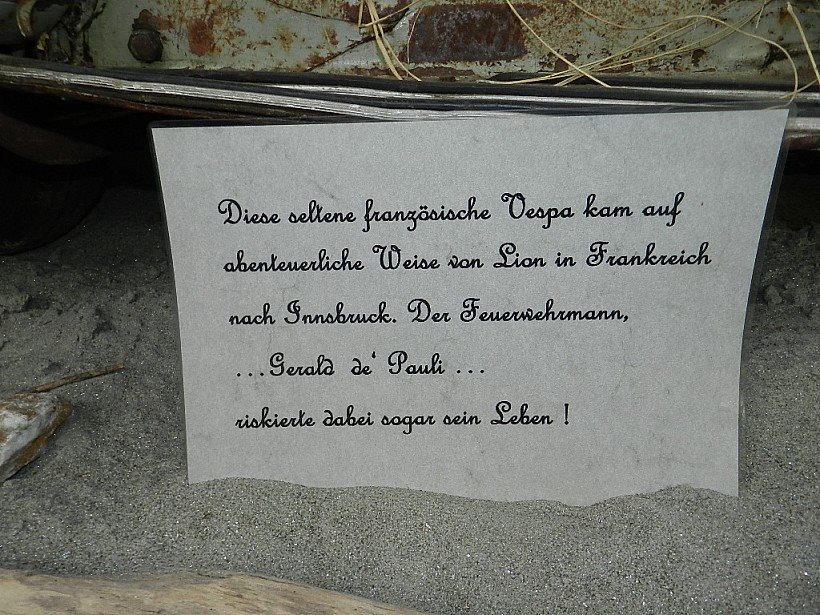 Diese seltene französische Vespa kam auf
abenteuerliche Weise von Lion in Frankreich
nach Innsbruck. Der Feuerwehrmann,
...Gerald de' Pauli ...
riskierte dabei sogar sein Leben !